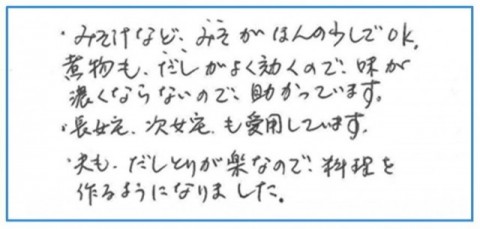 ・みそ汁など、みそがほんの少しでOK,
煮物も、だしがよく効くので、味が
濃くならないので、助かっています。
・長女宅、次女宅、も愛用しています。
・夫も、だしとりが楽なので、料理を
作るようになりました。